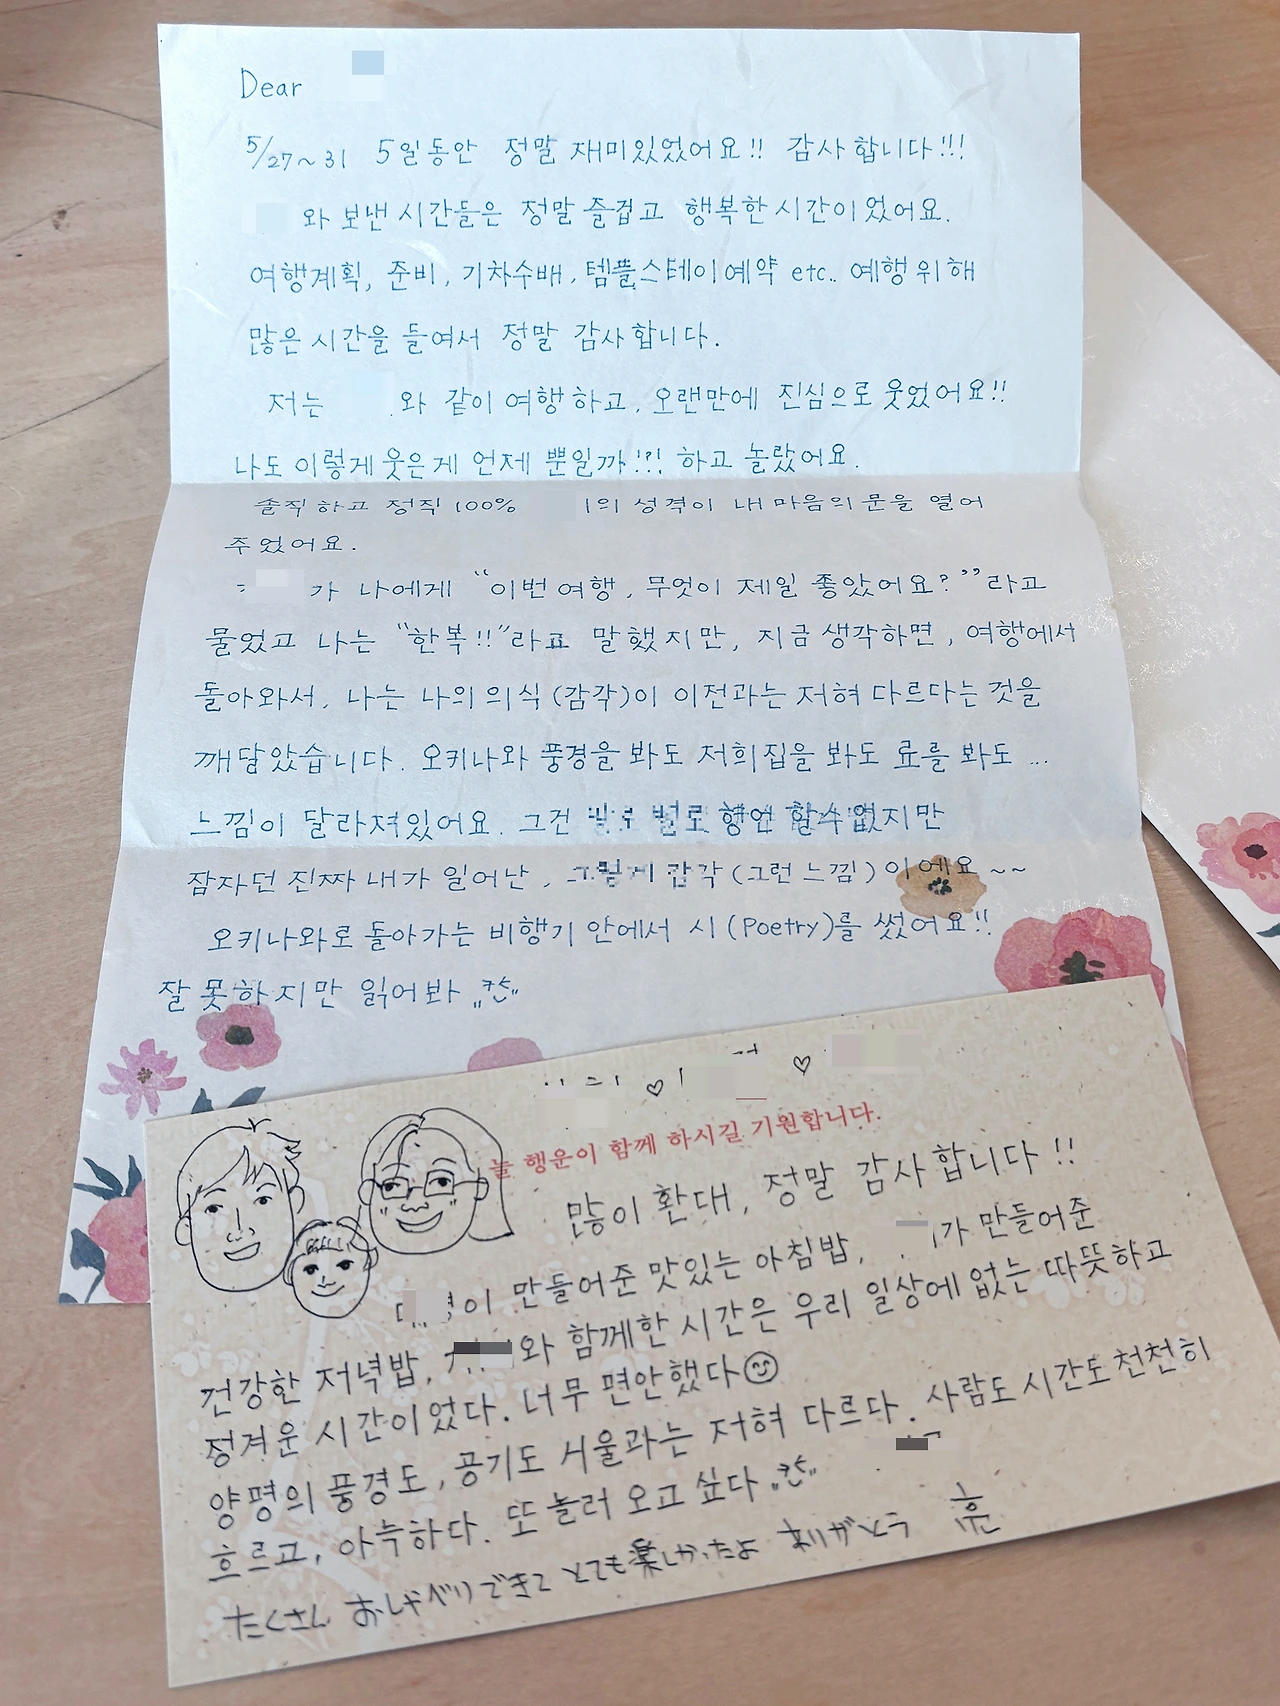 Dear
5/27~31 5일동안 정말 재미있었어요!! 감사합니다!!!
와 보낸 시간들은 정말 즐겁고 행복한 시간이었어요.
여행계획, 준비, 기차수배, 템플스테이예약 etc.. 예행위해
많은 시간을 들여서 정말 감사합니다.
저는 와 같이 여행하고, 오랜만에 진심으로 웃었어요!!
나도 이렇게 웃은게 언제 뿐일까!?! 하고 놀랐어요.
솔직하고 정직 100% 의 성격이 내 마음의 문을 열어
주었어요.
가 나에게 "이번 여행, 무엇이 제일 좋았어요?"라고
물었고 나는 "한복!!"라고 말했지만, 지금 생각하면, 여행에서
돌아와서, 나는 나의 의식(감각)이 이전과는 저혀 다르다는 것을
깨달았습니다. 오키나와 풍경을 봐도 저희집을 봐도 료를 봐도...
느낌이 달라져있어요. 그건 별로 형언 할수 없지만
잠자던 진짜 내가 일어난, 그렇게 감각(그런 느낌)이에요~~
오키나와로 돌아가는 비행기 안에서 시(Poetry)를 썼어요!!
잘 못하지만 읽어봐
♡ ♡
늘 행운이 함께 하시길 기원합니다.
많이 환대, 정말 감사합니다!!
이 만들어준 맛있는 아침밥, 가 만들어준
건강한 저녁밥, 와 함께한 시간은 우리 일상에 없는 따뜻하고
정겨운 시간이었다. 너무 편안했다☺
양평의 풍경도, 공기도 서울과는 저혀 다르다. 사람도 시간도 천천히
흐르고, 아늑하다. 또 놀러 오고 싶다
たくさん おしゃべりできて とても楽しかったよ ありがとう 훈